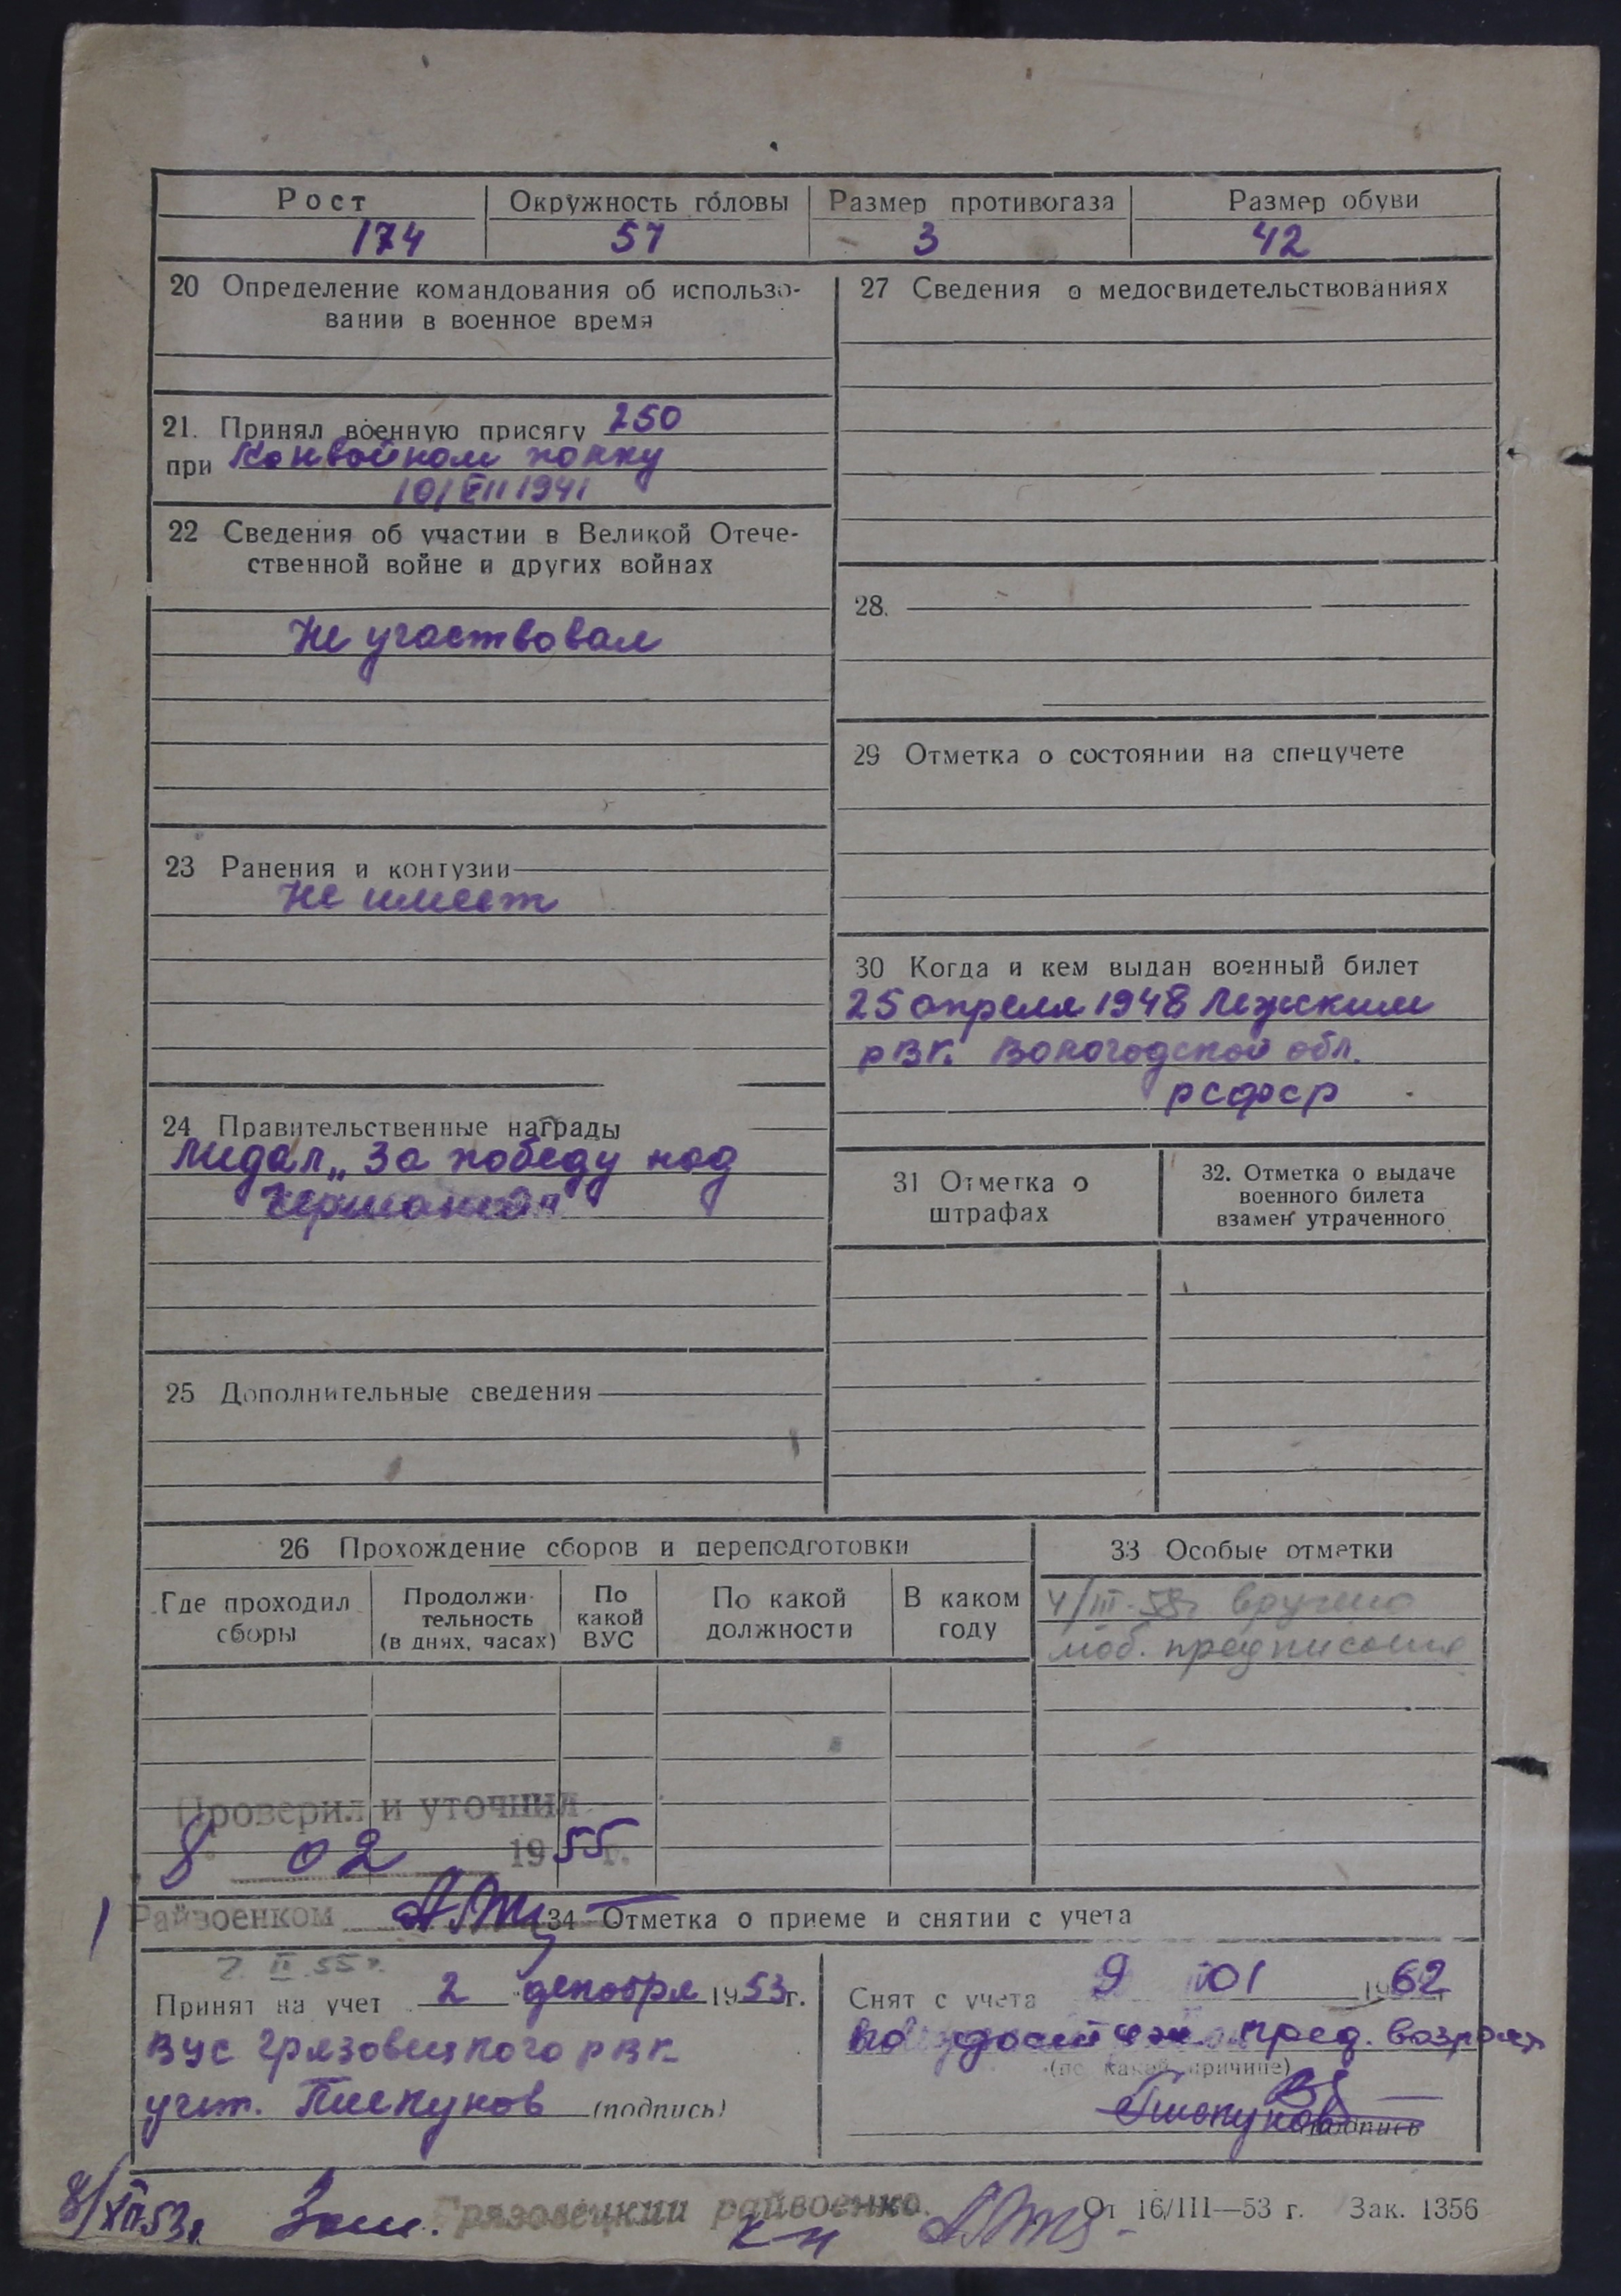 Рост Окружность головы Размер противогаза Размер обуви
174 57 3 42
20 Определение командования об использо-
вании в военное время
21. Принял военную присягу 250
при Конвойном полку
10/VII 1941
22 Сведения об участии в Великой Отече-
ственной войне и других войнах
Не участвовал
23 Ранения и контузии
Не имеет
24 Правительственные награды
Медал „За победу над
Германией"
25 Дополнительные сведения
27 Сведения о медосвидетельствованиях
28.
29 Отметка о состоянии на спецучете
30 Когда и кем выдан военный билет
25 апреля 1948 Лежским
РВК. Вологодской обл.
РСФСР
31 Отметка о
штрафах
32. Отметка о выдаче
военного билета
взамен утраченного
26 Прохождение сборов и переподготовки
Где проходил
сборы
Продолжи-
тельность
(в днях, часах)
По
какой
ВУС
По какой
должности
В каком
году
33 Особые отметки
4/III-58г вручено
моб. предписание
Проверил и уточнил
8 02 1955г.
Райвоенком
34 Отметка о приеме и снятии с учета
7. II 55 г.
Принят на учет 2 декабря 1953г.
ВУС Грязовецкого РВК
учит. Пискунов (подпись)
Снят с учета 9 01 1962 г
по достиж. пред. возраст
(по какой причине)
Пискунов
подпись
8/XII 53г. Зам. Грязовецкий райвоенко.
к-н
От 16/III—53 г. Зак. 1356